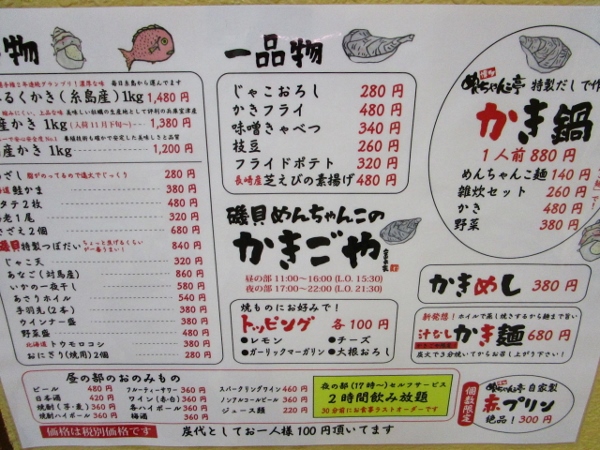 物
一品物
るくかき(糸島産)1kg 1,480円
産かき 1kg(入荷11月下旬~) 1,380円
産かき 1kg 1,200円
ざし 280円
鮭かま 380円
タテ2枚 480円
老1尾 320円
ざえ2個 680円
特製つぼだい 840円
じゃこ天 320円
あなご(対馬産) 860円
いかの一夜干し 580円
あさりホイル 540円
手羽先(2本) 380円
ウインナー盛 380円
野菜盛 480円
北海道トウモロコシ 320円
おにぎり(焼用)2個 280円
じゃこおろし 280円
かきフライ 480円
味噌きゃべつ 340円
枝豆 260円
フライドポテト 320円
長崎産芝えびの素揚げ 480円
磯貝めんちゃんこの
かきごや
昼の部 11:00~16:00(L.O. 15:30)
夜の部 17:00~22:00(L.O. 21:30)
焼ものにお好みで!
トッピング 各100円
●レモン ●チーズ
●ガーリックマーガリン ●大根おろし
博多
めんちゃんこ亭 特製だしで作
かき鍋
1人前880円
めんちゃんこ麺 140円
雑炊セット 260円
かき 480円
野菜 380円
かきめし 380円
新発想!ホイルで蒸し焼きするから麺まで旨い
汁なしかき麺 680円
炭火で3分焼いてからお召し上がり下さい!
昼の部のおのみもの
ビール 480円
日本酒 420円
焼酎(芋・麦) 360円
焼酎ハイボール 360円
フルーティーサワー 360円
ワイン(赤・白) 360円
各ハイボール 360円
梅酒 360円
スパークリングワイン 460円
ノンアルコールビール 360円
ジュース類 220円
夜の部(17時~)セルフサービス
2時間飲み放題
30分前にお食事ラストオーダーです
個数限定
めんちゃんこ亭 自家製
赤プリン
絶品!300円
価格は税別価格です
炭代としてお一人様100円頂いてます